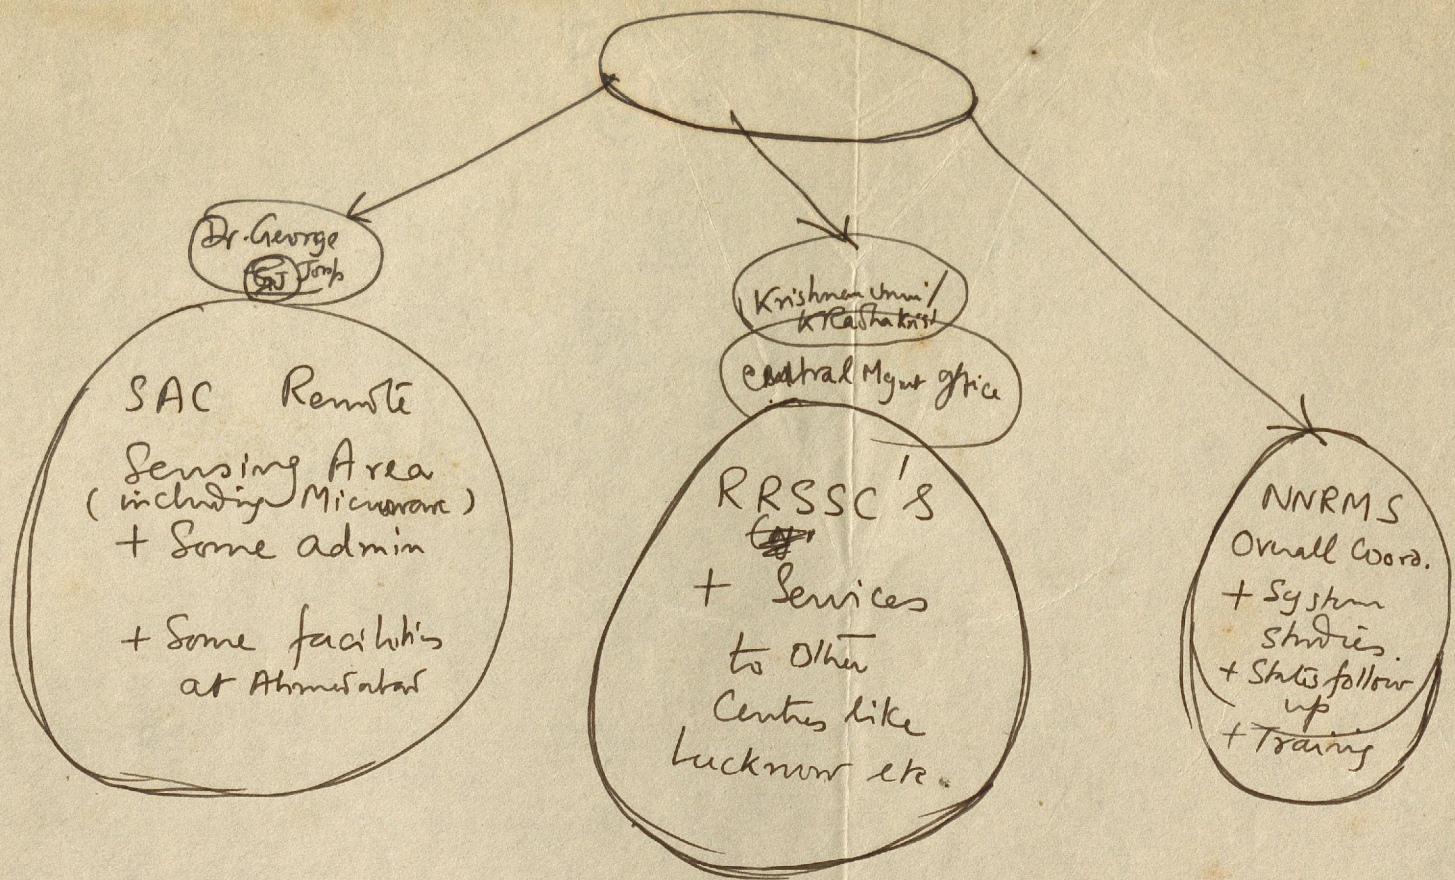 Dr. George
Josep
SAC Remote
Sensing Area
(including Microwave)
+ Some admin
+ Some facilities
at Ahmedabad
Krishnan Unni/
K Radhakrish
Central Mgmt Office
RRSSC's
+ Services
to Other
Centres like
Lucknow etc.
NNRMS
Overall Coord.
+ System
Studies.
+ States follow
up
+ Training